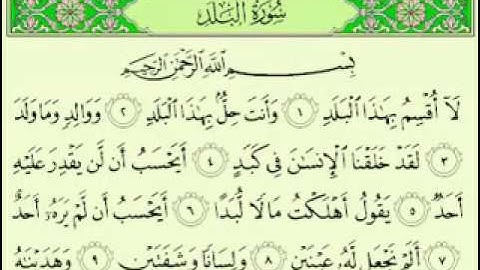 سُورَةُ الْبَلَدِ
بِسْمِ اللَّهِ الرَّحْمَٰنِ الرَّحِيمِ
لَآ أُقْسِمُ بِهَٰذَا الْبَلَدِ ١ وَأَنتَ حِلٌّۢ بِهَٰذَا الْبَلَدِ ٢ وَوَالِدٍ وَمَا وَلَدَ
٣ لَقَدْ خَلَقْنَا الْإِنسَٰنَ فِي كَبَدٍ ٤ أَيَحْسَبُ أَن لَّن يَقْدِرَ عَلَيْهِ
أَحَدٌ ٥ يَقُولُ أَهْلَكْتُ مَالًا لُّبَدًا ٦ أَيَحْسَبُ أَن لَّمْ يَرَهُۥٓ أَحَدٌ
٧ أَلَمْ نَجْعَل لَّهُۥ عَيْنَيْنِ ٨ وَلِسَانًا وَشَفَتَيْنِ ٩ وَهَدَيْنَٰهُ